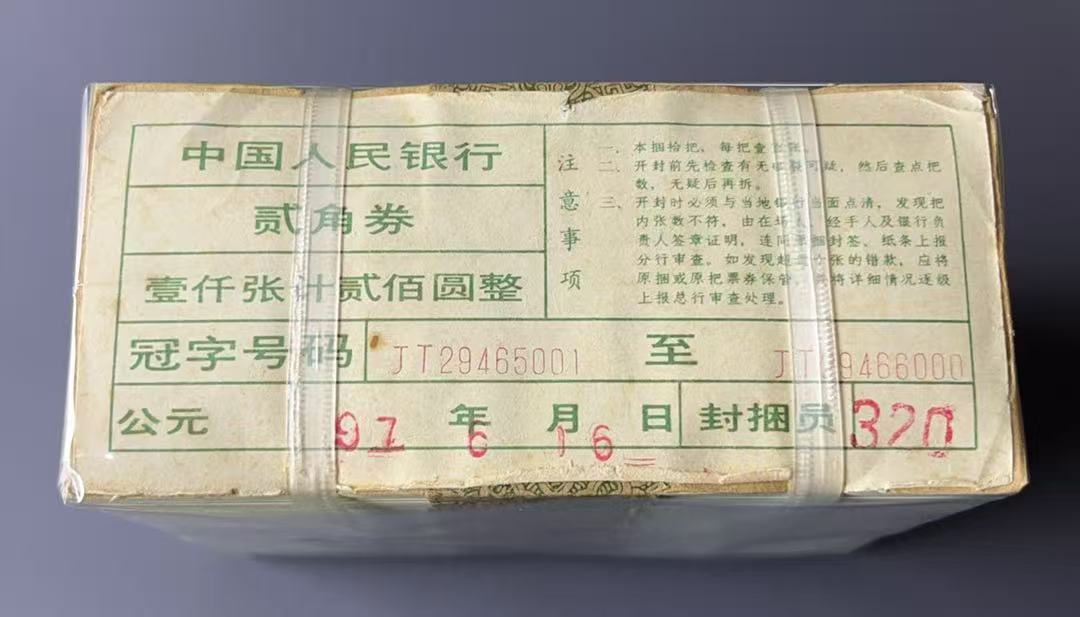 中国人民银行
贰角券
壹仟张计贰佰圆整
注意事项
一、本捆拾把，每把壹张。
二、开封前先检查有无可疑，然后查点把
数，无疑后再拆。
三、开封时必须与当地银行当面点清，发现把
内张数不符，由在场人、经手人及银行负
责人签章证明，连同原捆封签、纸条上报
分行审查。如发现张的错款，应将
原捆或原把票券保管，并将详细情况逐级
上报总行审查处理。
冠字号码 JT29465001 至 JT29466000
公元 97 年 6 月 16 日 封捆员 320